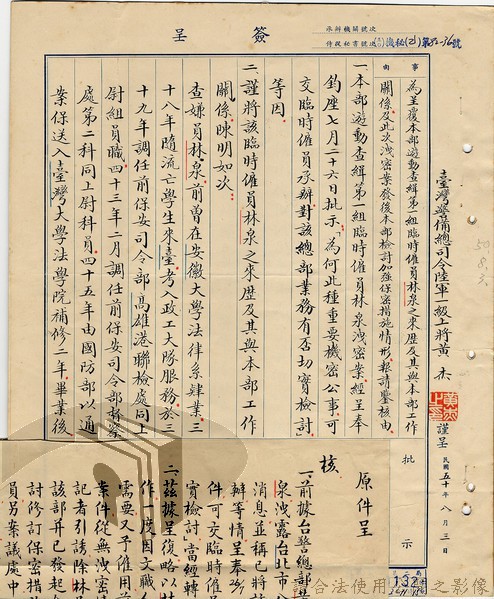 簽呈
次號關機辦承
號送書祕院侍
機秘(乙)第80-36號
事由
為呈覆本部遊動查緝第一組臨時僱員林泉之來歷及其與本部工作
關係及此次洩密案發後本部檢討加強保密措施情形報請鑒核由
臺灣警備總司令陸軍一級上將黃杰
謹呈
民國五十年八月三日
批示
50.8.3.
一、本部遊動查緝第一組臨時僱員林泉洩密案經呈奉
鈞座七月二十六日批示「為何此種重要機密公事可
交臨時僱員承辦對該總部業務有否切實檢討」
等因。
二、謹將該臨時僱員林泉之來歷及其與本部工作
關係陳明如次：
查嫌員林泉前曾在安徽大學法律系肄業三
十八年隨流亡學生來臺考入政工大隊服務於三
十九年調任前保安司令部高雄港聯檢處同上
尉組員職四十三年二月調任前保安司令部督察
處第二科同上尉科員四十五年由國防部以通
案保送入臺灣大學法學院補修二年畢業後
原件呈
核
一、前據台警總部
泉洩露台北市
消息並稱已將
辦等情呈奉26/7
件可交臨時僱
實檢討」當經轉
二、茲據呈復略以林
作一度因文職人
需要又予僱用前
案件從無洩密
記者引誘除林
該部并已發起
討修訂保密措
員另案議處中
132
合法使用
之影像